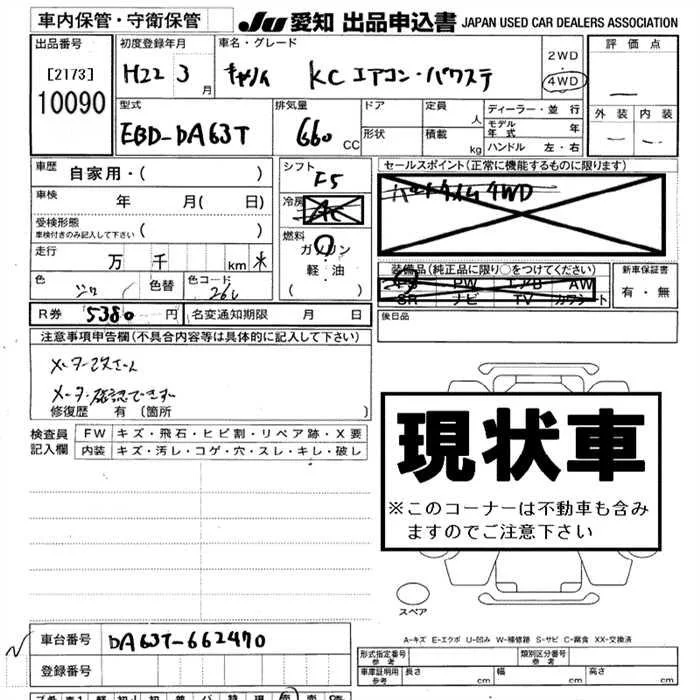 車内保管・守衛保管
JU 愛知 出品申込書 JAPAN USED CAR DEALERS ASSOCIATION
出品番号
[2173]
10090
初度登録年月
H22 3 月
車名・グレード
キャリイ KC エアコン・パワステ
2WD
・
4WD
評価点
外装 内装
型式
EBD-DA63T
排気量
660 CC
ドア
形状
定員 人
積載 kg
ディーラー・並 行
モデル年式 年
ハンドル 左・右
車歴
自家用・( )
車検 年 月( 日)
受検形態
車検付きのみ記入して下さい ( )
走行 万 千 km
色 シロ
色替
色コード 26U
シフト
F5
冷房
AC
燃料
ガソリン
軽・油
( )
セールスポイント(正常に機能するものに限ります)
パートタイム 4WD
装備品(純正品に限り○をつけてください)
PS PW エアB AW
SR ナビ TV カワシート
新車保証書
有・無
R券 5380 円
名変通知期限 月 日
後日品
注意事項申告欄(不具合内容等は具体的に記入して下さい)
メーター改ざん
メーター確認できず
修復歴 有 〔箇所 〕
検査員
記入欄
FW キズ・飛石・ヒビ割・リペア跡・X要
内装 キズ・汚レ・コゲ・穴・スレ・キレ・破レ
現状車
※このコーナーは不動車も含み
ますのでご注意下さい
スペア
A-キズ E-エクボ U-凹み W-補修跡 S-サビ C-腐食 XX-交換済
車台番号 DA63T-662470
登録番号
形式指定番号
参考
類別区分番号
参考
車庫証明用
参考
長さ cm
幅 cm
高さ cm